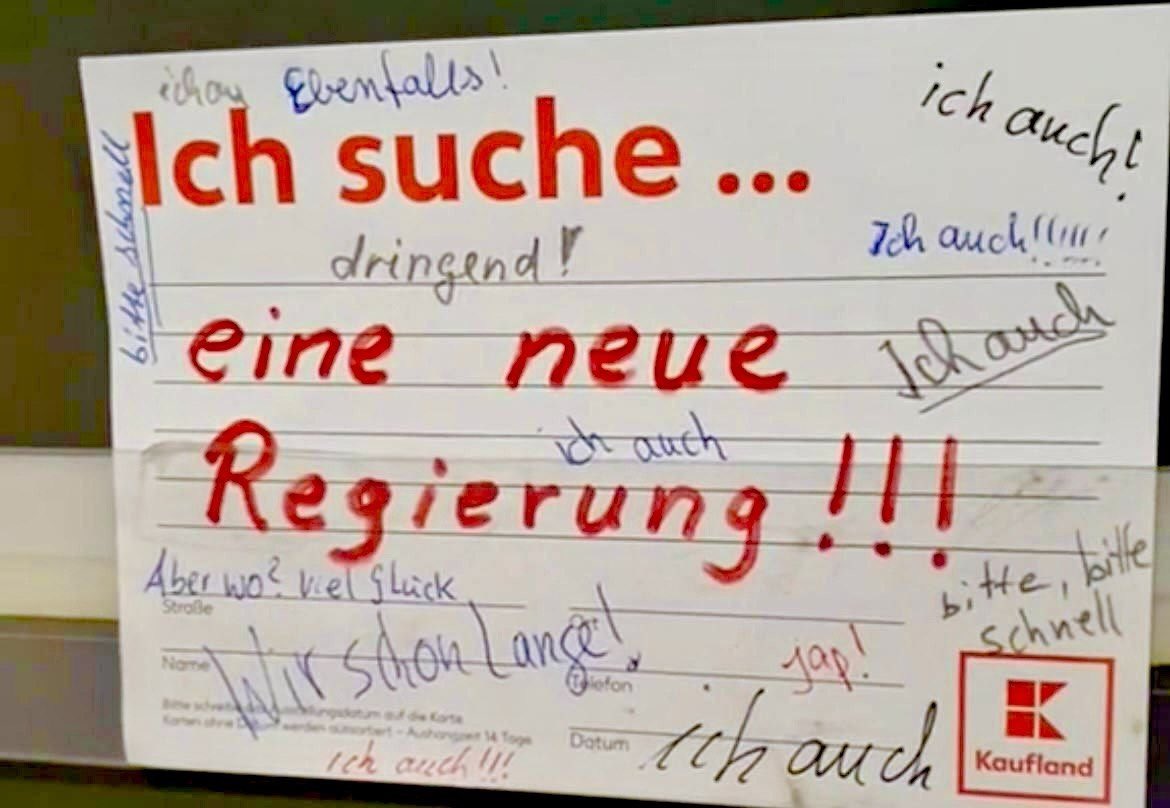 Ebenfalls!
ich auch!
Ich suche ...
bitte schnell
dringend!
Ich auch!!!!!!!
eine neue
Ich auch
ich auch
Regierung!!!
bitte, bitte
schnell
Aber wo? viel Glück
Straße
Wir schon Lange!
Ort
jap!
Name
Telefon
Bitte
datum auf die Karte
Karten ohne
werden aussortiert – Aushangzeit 14 Tage
Datum
ich auch
ich auch!!!
Kaufland